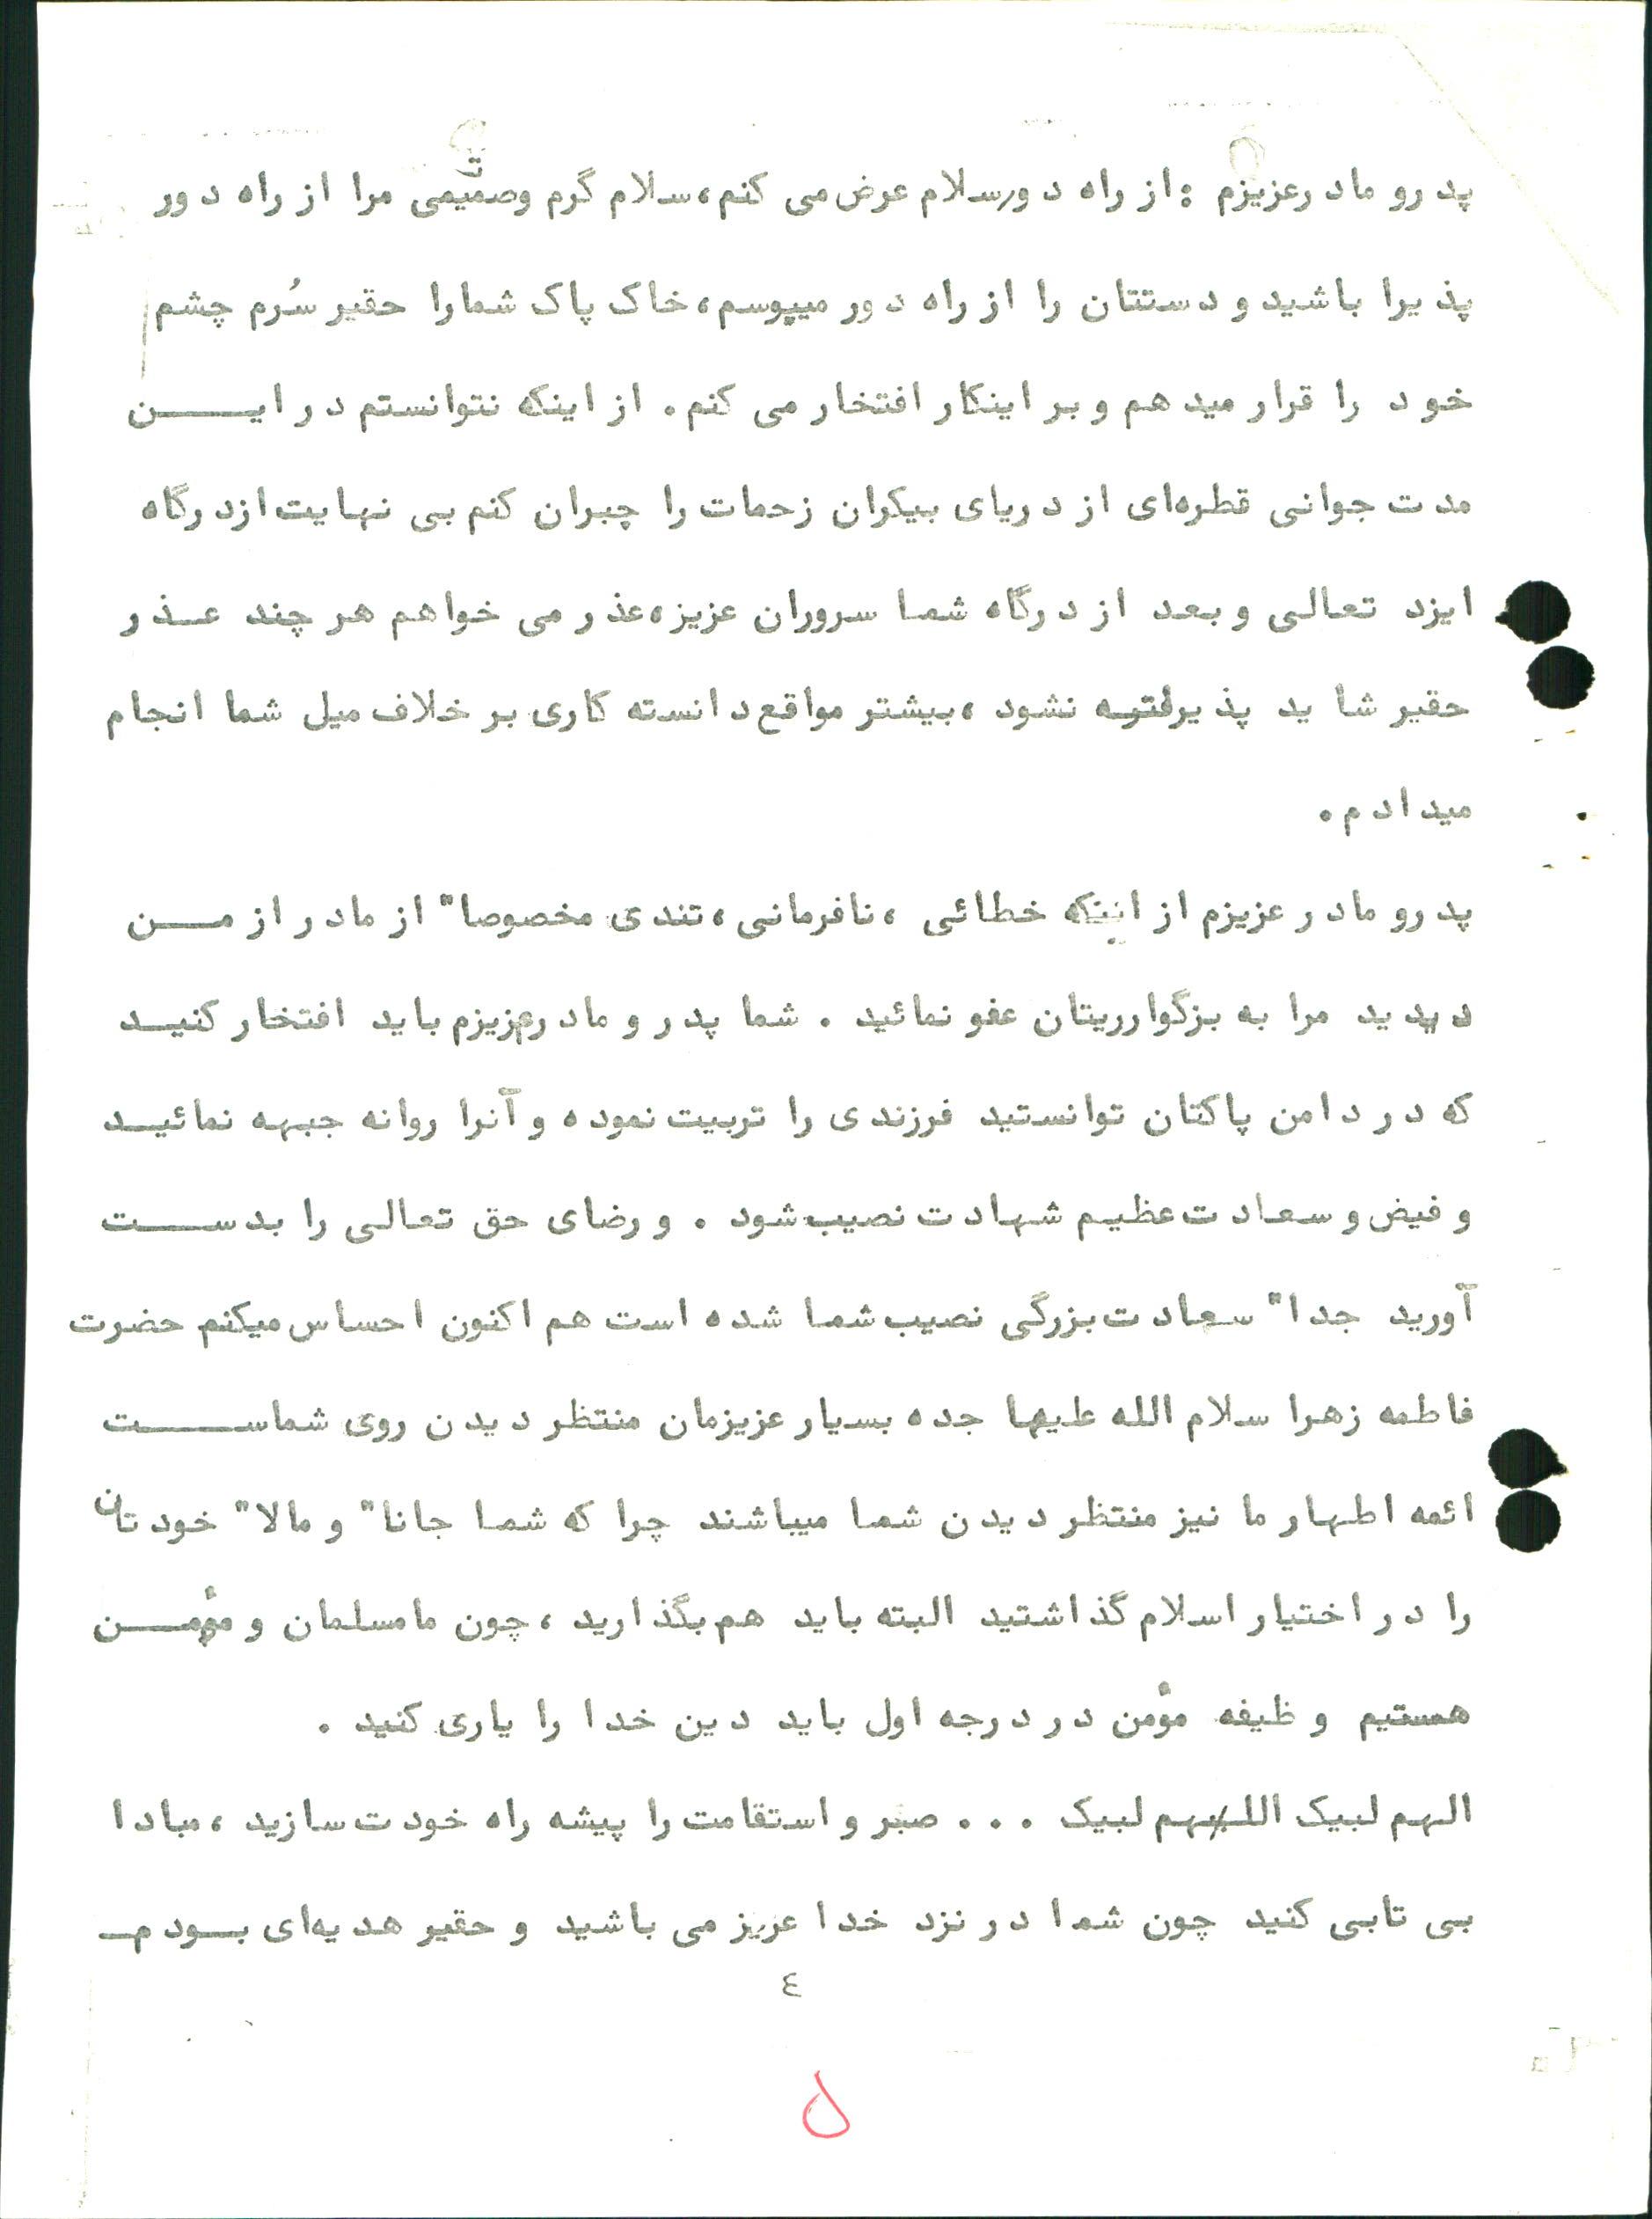 پدرو مادرعزیزم : از راه دورسلام عرض می کنم، سلام گرم وصمیمی مرا از راه دور
پذیرا باشید و دستتان را از راه دور میبوسم، خاک پاک شمارا حقیر سُرم چشم
خود را قرار میدهم و بر اینکار افتخار می کنم. از اینکه نتوانستم در ایــــن
مدت جوانی قطره‌ای از دریای بیکران زحمات را جبران کنم بی نهایت ازدرگاه
ایزد تعالی و بعد از درگاه شما سروران عزیز، عذر می خواهم هر چند عــذر
حقیر شاید پذیرفته نشود ، بیشتر مواقع دانسته کاری بر خلاف میل شما انجام
میدادم.
پدرو مادر عزیزم از اینکه خطائی ، نافرمانی ، تندی مخصوصا" از مادر از مــن
دیدید مرا به بزگوارریتان عفو نمائید . شما پدر و مادرعزیزم باید افتخار کنیــد
که در دامن پاکتان توانستید فرزندی را تربیت نموده و آنرا روانه جبهه نمائیــد
و فیض و سعادت عظیم شهادت نصیب شود . و رضای حق تعالی را بدســت
آورید جدا" سعادت بزرگی نصیب شما شده است هم اکنون احساس میکنم حضرت
فاطمه زهرا سلام الله علیها جده بسیار عزیزمان منتظر دیدن روی شماســـت
ائمه اطهار ما نیز منتظر دیدن شما میباشند چرا که شما جانا" و مالا" خودتان
را در اختیار اسلام گذاشتید البته باید هم بگذارید ، چون ما مسلمان و مؤمــن
هستیم وظیفه مؤمن در درجه اول باید دین خدا را یاری کنید .
الهم لبیک اللهم لبیک . . . صبر و استقامت را پیشه راه خودت سازید ، مبادا
بی تابی کنید چون شما در نزد خدا عزیز می باشید و حقیر هدیه‌ای بــودم
٤
۵